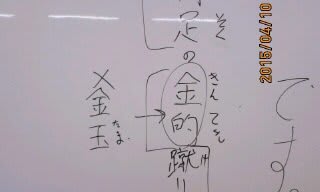 です。
足の金的蹴り
きんてき
け
×金玉
たま
2015/04/10